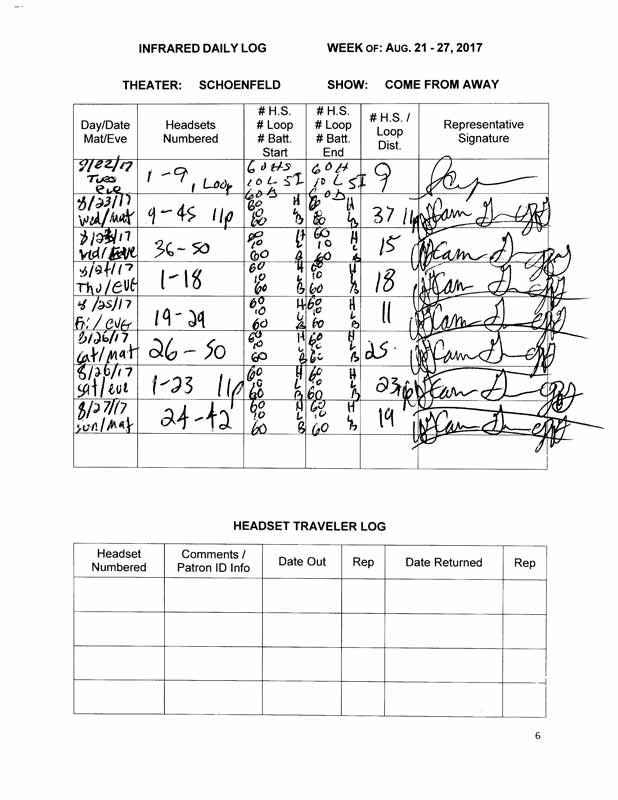 INFRARED DAILY LOG WEEK OF: AUG. 21 - 27, 2017
THEATER: SCHOENFELD SHOW: COME FROM AWAY
Day/Date Mat/Eve Headsets Numbered # H.S. # Loop # Batt. Start # H.S. # Loop # Batt. End # H.S. / Loop Dist. Representative Signature
8/22/17 Tues eve 1-9, 1 Loop 60 HS 10 L SI 60 B 60 H 10 L SI 60 B 9
8/23/17 Wed/Mat 9-45 1lp 60 H 10 L 60 B 60 H 10 L 60 B 37 1lp
8/23/17 Wed/Eve 36-50 60 H 10 L 60 B 60 H 10 L 60 B 15
8/24/17 Thu/EVE 1-18 60 H 10 L 60 B 60 H 10 L 60 B 18
8/25/17 Fri/EVE 19-29 60 H 10 L 60 B 60 H 10 L 60 B 11
8/26/17 Sat/Mat 26-50 60 H 10 L 60 B 60 H 10 L 60 B 25
8/26/17 Sat/eve 1-23 1lp 60 H 10 L 60 B 60 H 10 L 60 B 23
8/27/17 Sun/Mat 24-42 60 H 10 L 60 B 60 H 10 L 60 B 19
HEADSET TRAVELER LOG
Headset Numbered Comments / Patron ID Info Date Out Rep Date Returned Rep
6